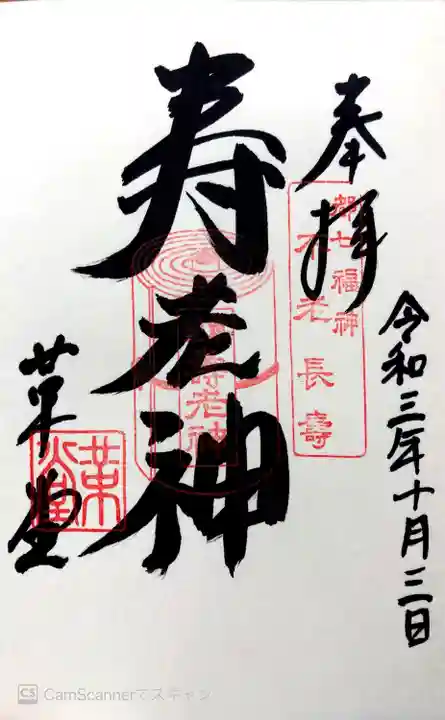 奉拝
都七福神
不老長壽
令和三年十月三日
寿老神
寿老神
革堂
革堂
CamScannerでスキャン